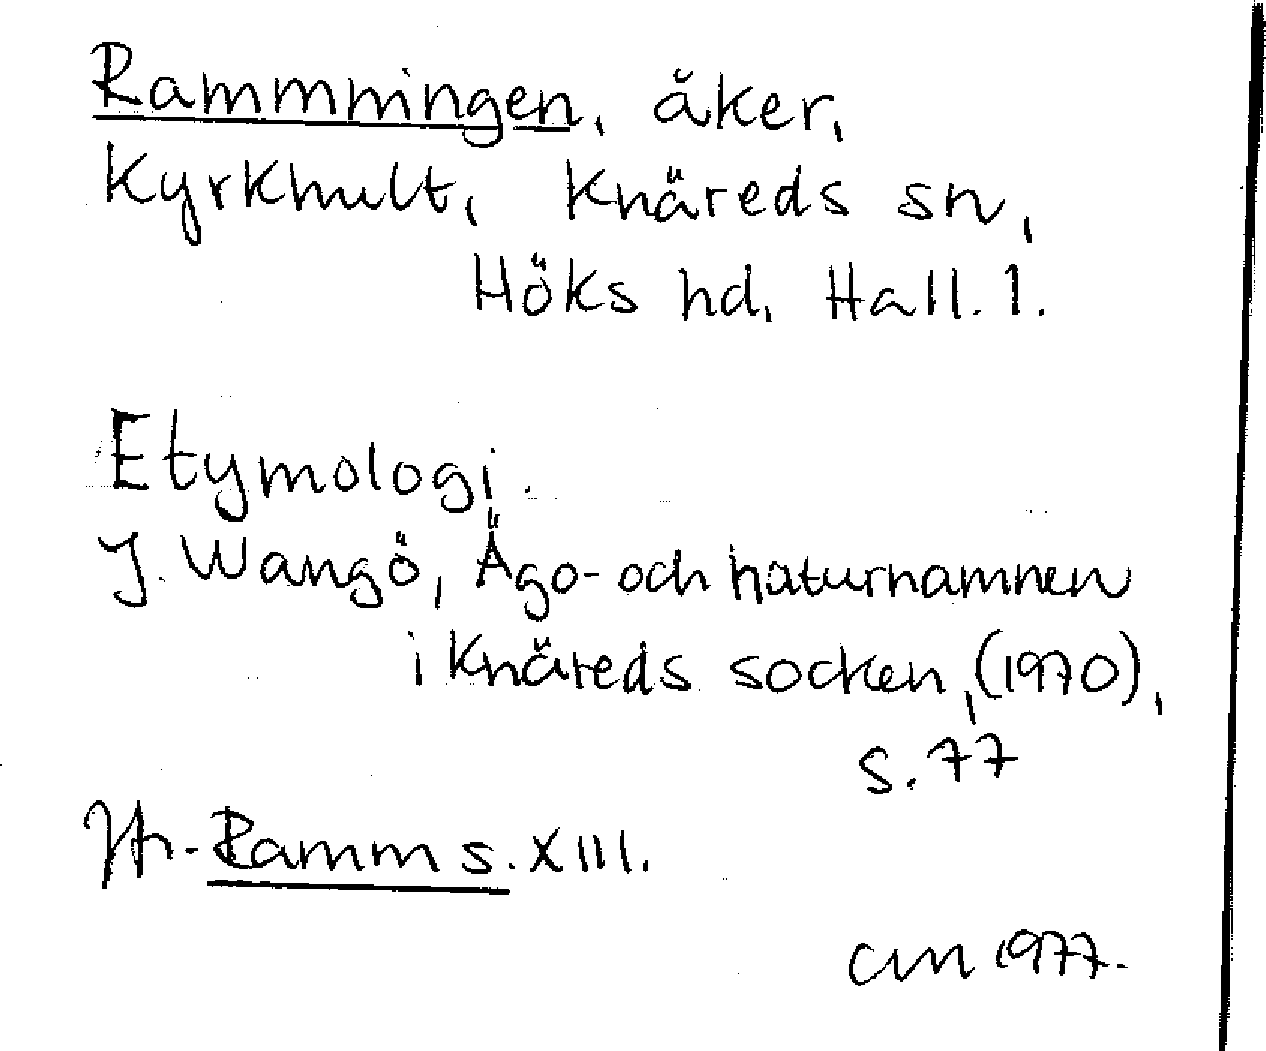 Rammningen, åker,
Kyrkhult, Knäreds sn,
Höks hd, Hall. l.
Etymologi.
J. Wangö, Ägo- och naturnamnen
i Knäreds socken, (1970),
s. 77
Jfr - Ramm s. XIII.
cm 1977.